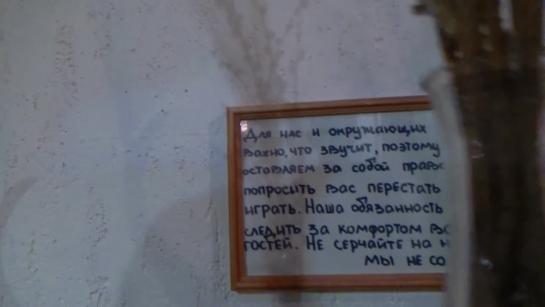 Для нас и окружающих
важно, что звучит, поэтому
оставляем за собой право
попросить вас перестать
играть. Наша обязанность
следить за комфортом
гостей. Не серчайте на
мы не со